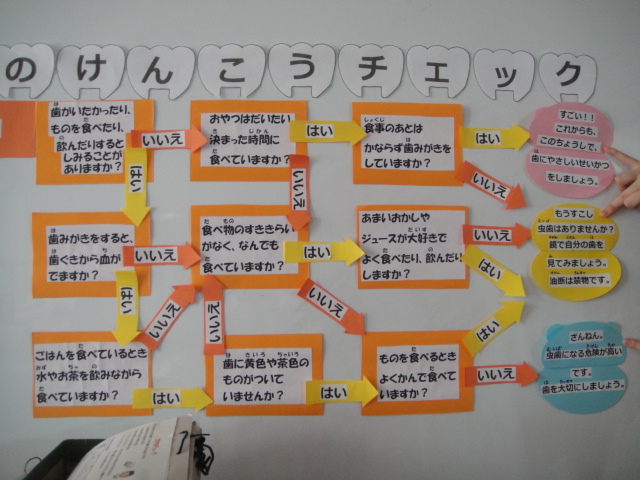 のけんこうチェック
歯がいたかったり、
ものを食べたり、
飲んだりすると
しみることが
ありますか？
いいえ
はい
おやつはだいたい
決まった時間に
食べていますか？
はい
いいえ
食事のあとは
かならず歯みがきを
していますか？
はい
いいえ
すごい！！
これからも、
このちょうしで、
歯にやさしいせいかつ
をしましょう。
歯みがきをすると、
歯ぐきから血が
でますか？
いいえ
はい
食べ物のすききらい
がなく、なんでも
食べていますか？
はい
いいえ
あまいおかしや
ジュースが大好きで
よく食べたり、飲んだり
しますか？
いいえ
はい
もうすこし
虫歯はありませんか？
鏡で自分の歯を
見てみましょう。
油断は禁物です。
ごはんを食べているとき
水やお茶を飲みながら
食べていますか？
いいえ
はい
歯に黄色や茶色の
ものがついて
いませんか？
いいえ
はい
ものを食べるとき
よくかんで食べて
いますか？
はい
いいえ
ざんねん。
虫歯になる危険が高い
です。
歯を大切にしましょう。